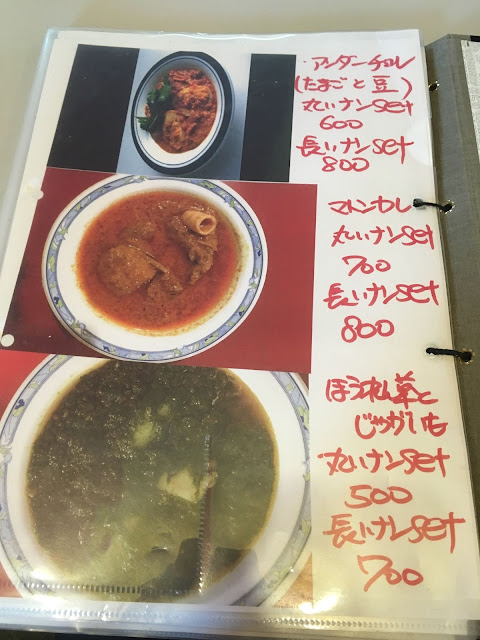 ・アンダーチョレ
(たまごと豆)
丸いナンset
600
長いナンset
800
マトンカレ
丸いナンset
700
長いナンset
800
ほうれん草と
じゃがいも
丸いナンset
500
長いナンset
700